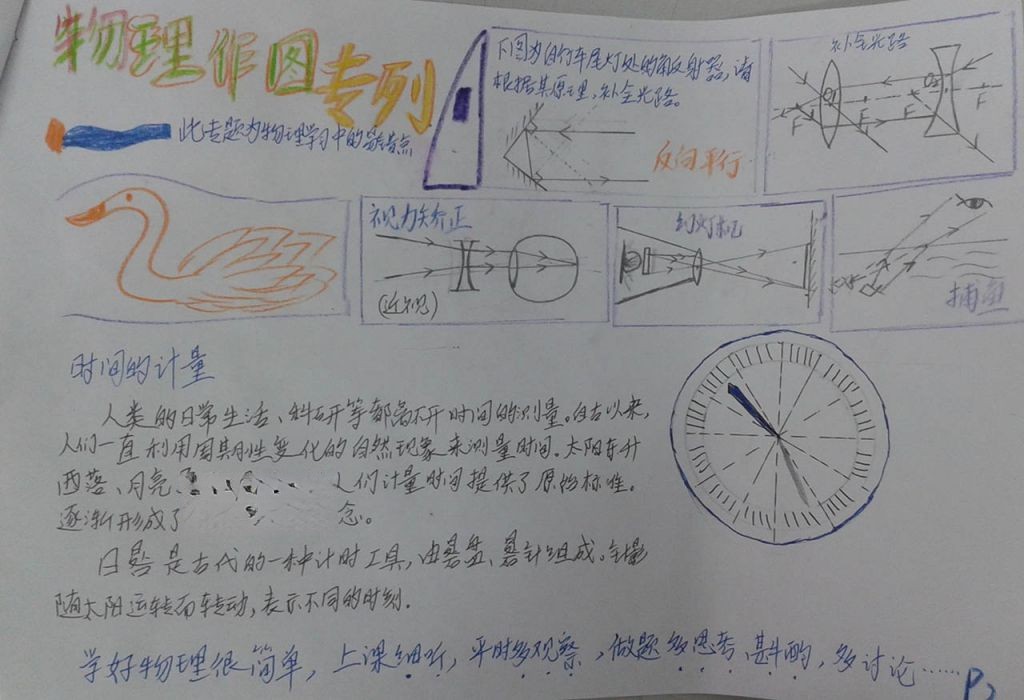 物理作图专列
此专题为物理学习中的易错点
下图为自行车尾灯处的角反射器，请
根据其原理，补全光路。
反向平行
补全光路
O₁
O₂
F
F
F
F
视力矫正
(近视)
幻灯机
捕鱼
时间的计量
人类的日常生活、科研等都离不开时间的测量。自古以来，
人们一直利用周期性变化的自然现象来测量时间。太阳东升
西落、月亮
人们计量时间提供了原始标准。
逐渐形成了
念。
日晷是古代的一种计时工具，由晷盘、晷针组成。针影
随太阳运转而转动，表示不同的时刻.
学好物理很简单，上课细听，平时多观察，做题多思考、斟酌，多讨论……